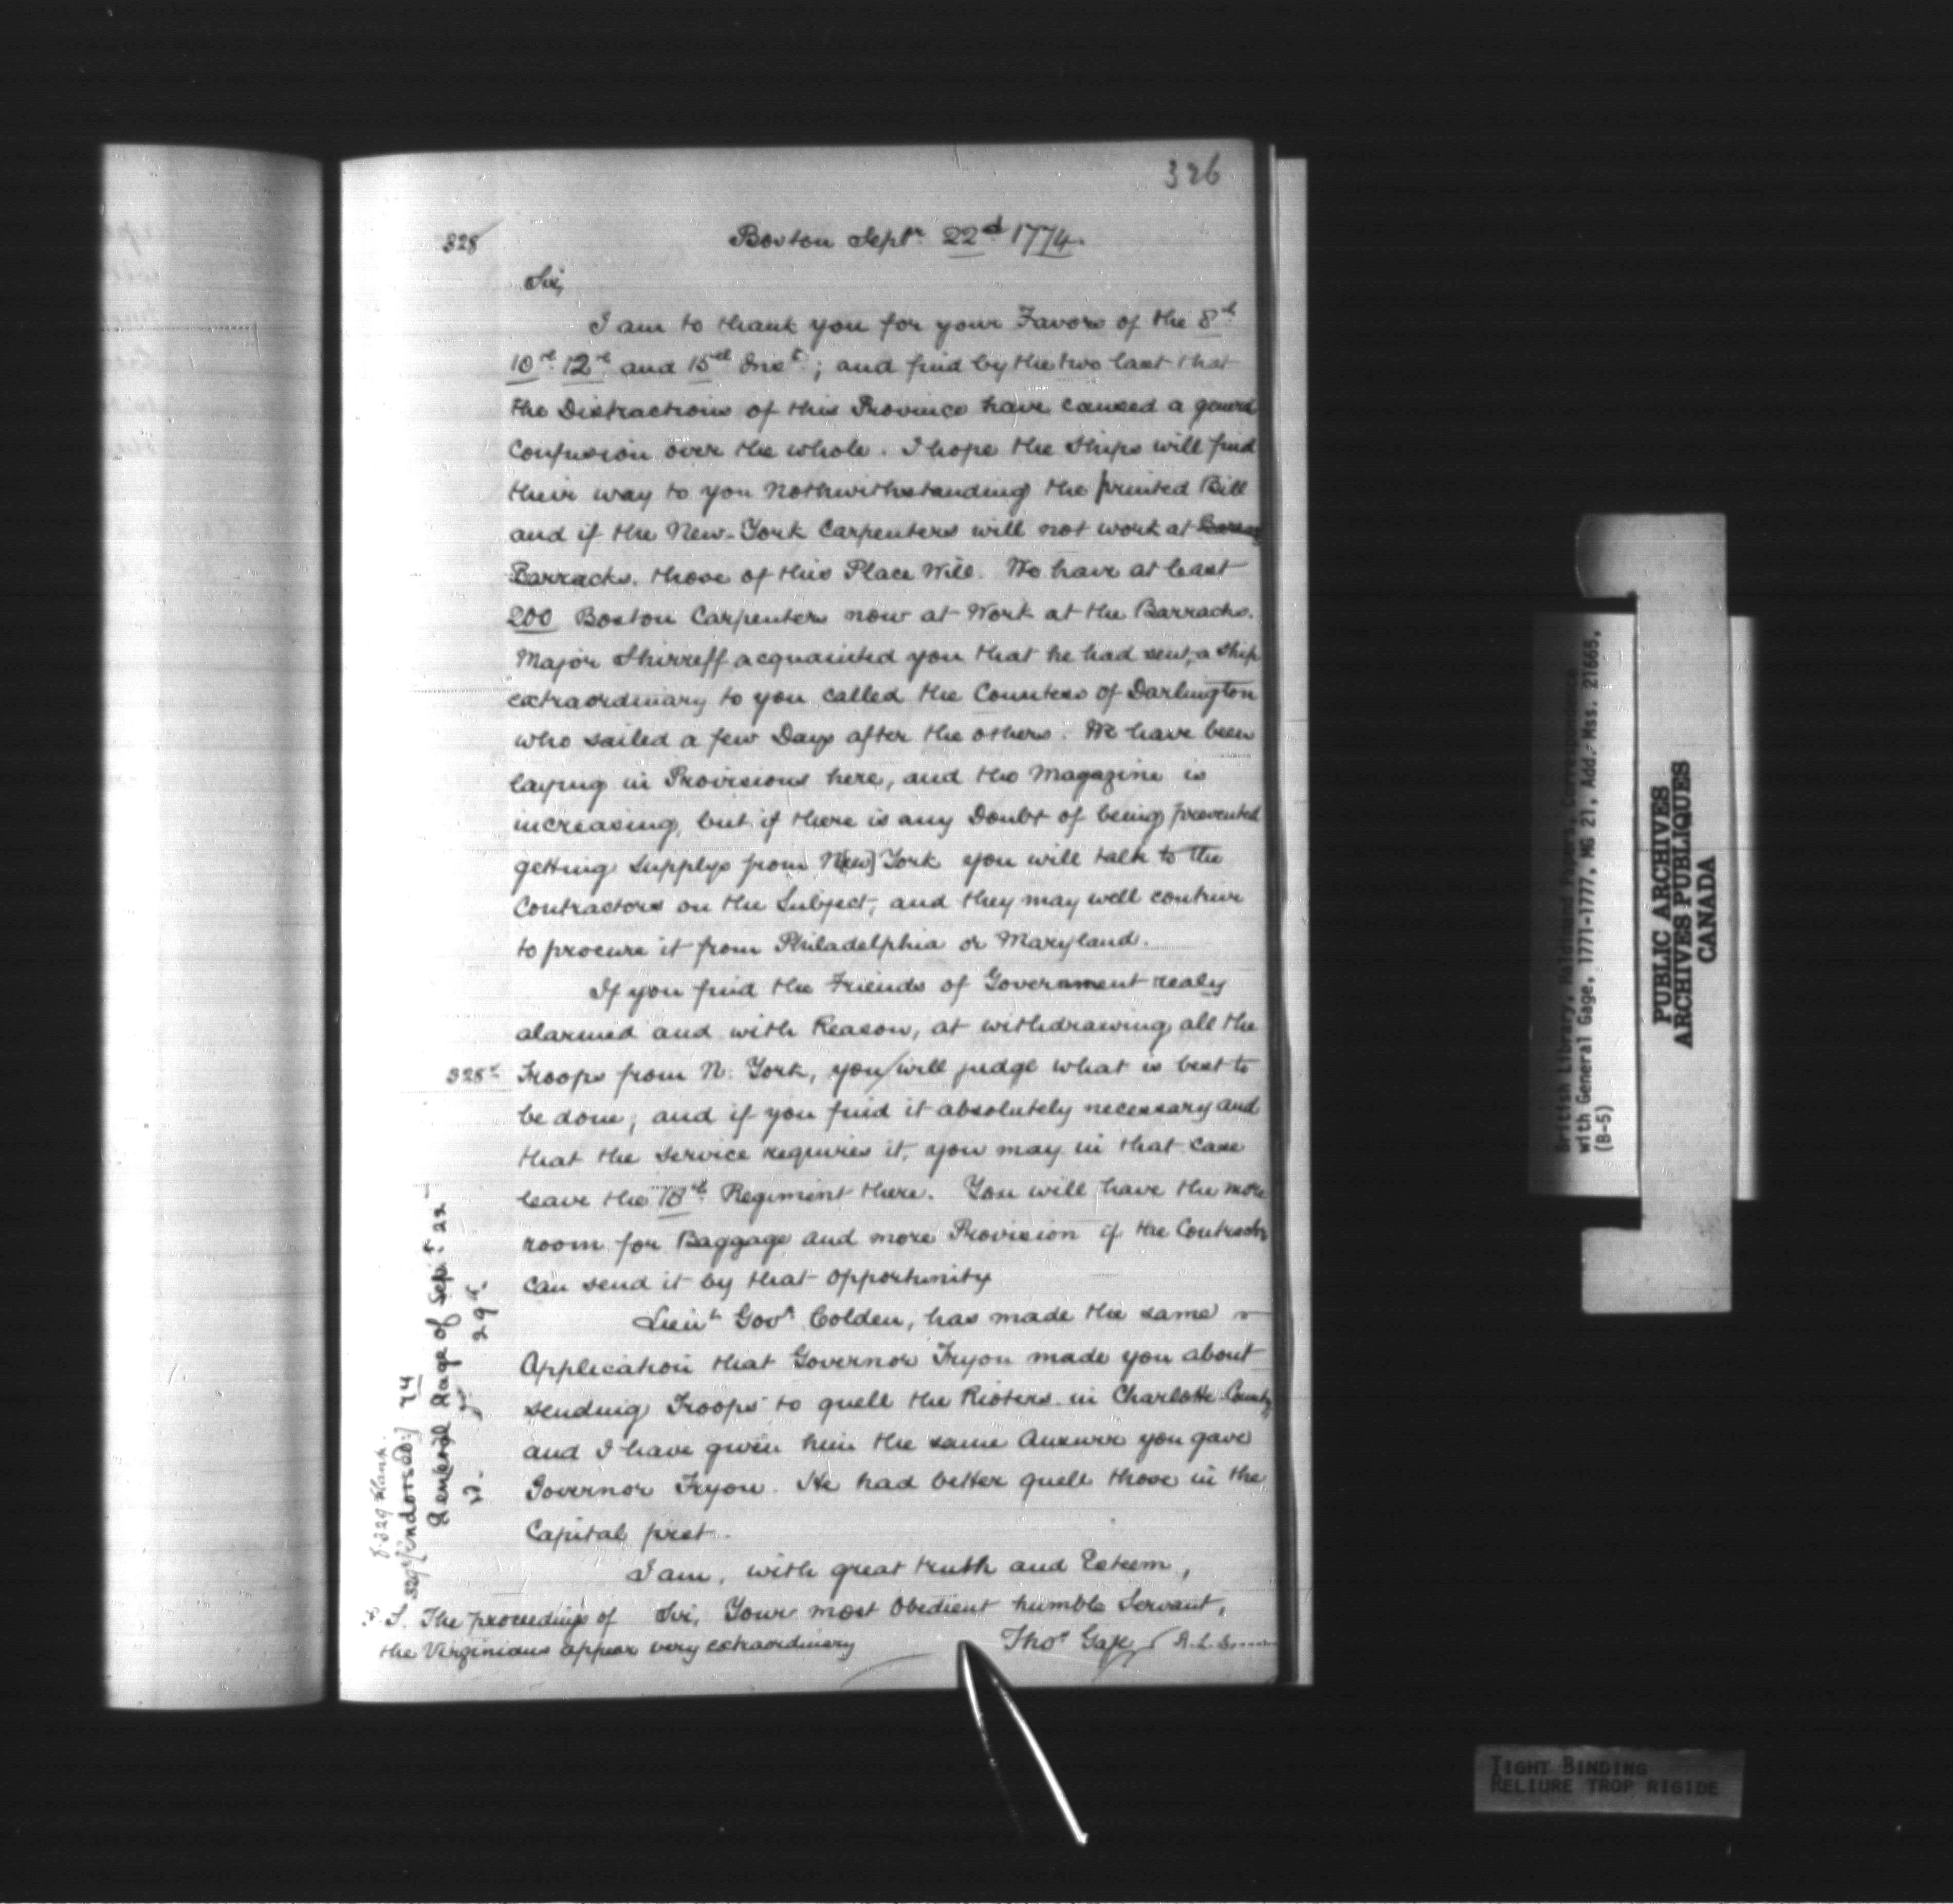 326
328
Boston Septr. 22d 1774.
Sir,
I am to thank you for your Favors of the 8th
10th 12th and 15th Inst.; and find by the two last that
the Distractions of this Province have caused a general
Confusion over the whole. I hope the Ships will find
their way to you Nothwithstanding the printed Bill
and if the New-York Carpenters will not work at
Barracks. those of this Place Will. We have at least
200 Boston Carpenters now at Work at the Barracks.
Major Shirreff acquainted you that he had sent a Ship
extraordinary to you called the Countess of Darlington
who sailed a few Days after the others. We have been
laying in Provisions here, and the Magazine is
increasing, but if there is any Doubt of being prevented
getting Supplys from N[ew] York you will talk to the
Contractors on the Subject, and they may well contrive
to procure it from Philadelphia or Maryland.
If you find the Friends of Government realy
alarmed and with Reason, at withdrawing all the
328v Troops from N. York, you/will judge what is best to
be done, and if you find it absolutely necessary and
that the Service requires it, you may in that case
leave the 18th Regiment there. You will have the more
room for Baggage and more Provision if the Contractor
can send it by that Opportunity
Lieut. Govr. Colden, has made the same
Application that Governor Tryon made you about
sending Troops to quell the Rioters in Charlotte County,
and I have given him the same Answer you gave
Governor Tryon. He had better quell those in the
Capital first.
I am, with great truth and Esteem,
Sir, Your most Obedient humble Servant,
Thos Gage
S. The proceedings of
the Virginians appear very extraordinary
f. 329 blank.
329v [indorsed:] 74
General Gage of Sept. 22
29th.
British Library, Haldimand Papers, Correspondence
with General Gage, 1771-1777, MG 21, Add. Mss. 21665,
(B-5)
PUBLIC ARCHIVES
ARCHIVES PUBLIQUES
CANADA
TIGHT BINDING
RELIURE TROP RIGIDE